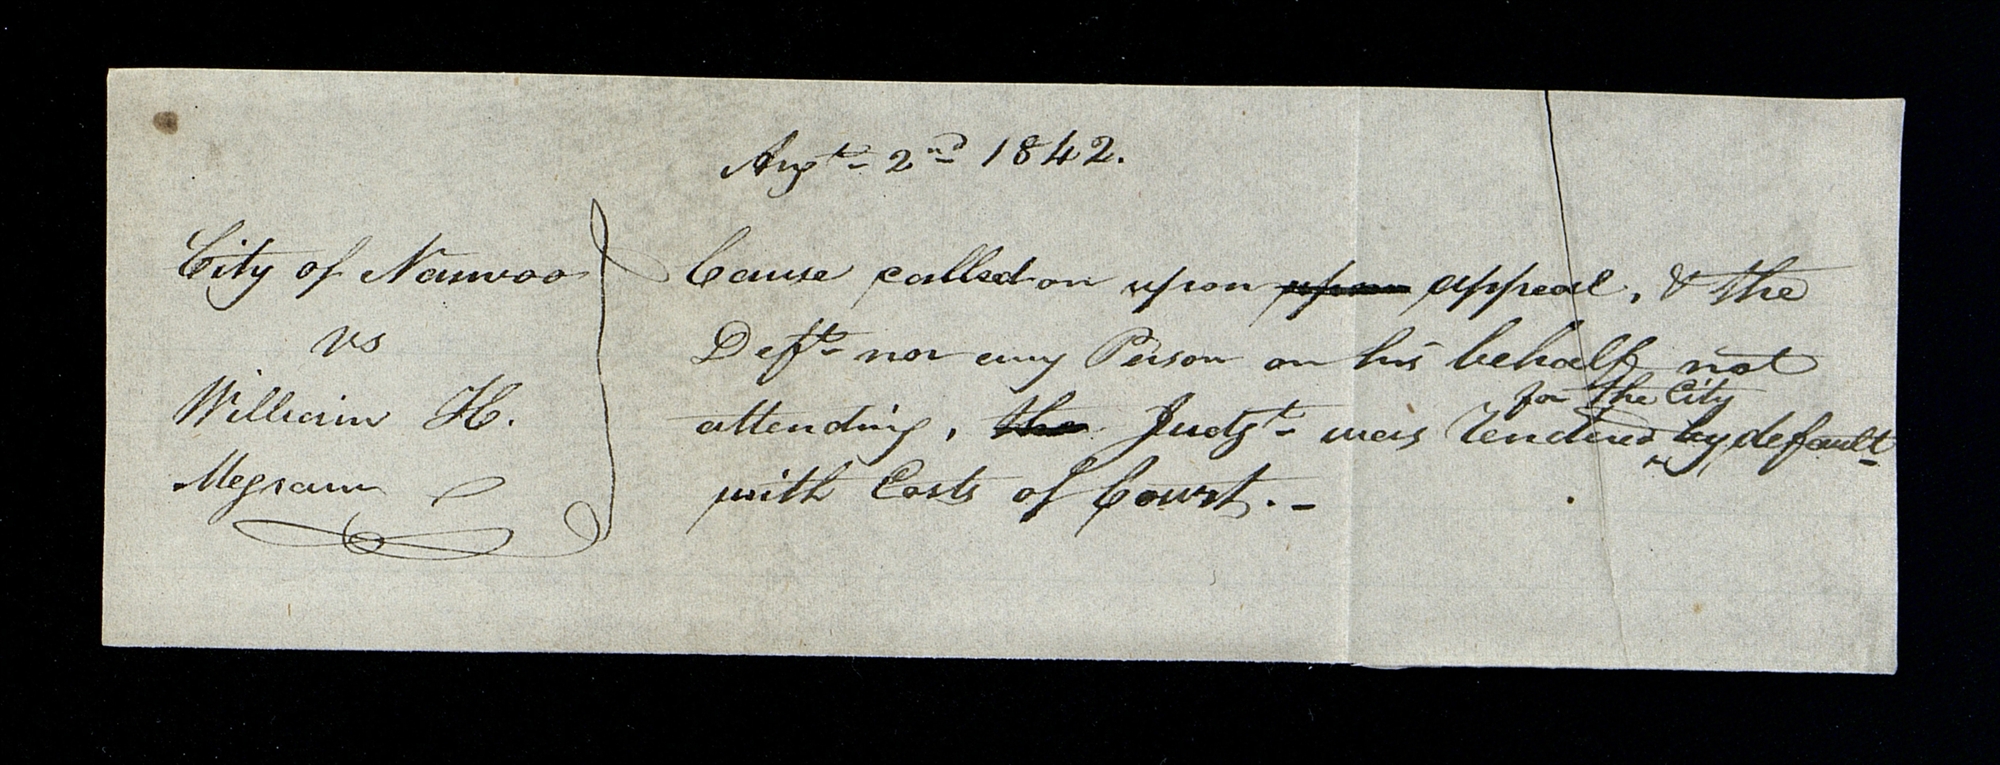 Augt. 2nd 1842.
City of Nauvoo
vs
William H.
Megraw
Cause called on upon upon appeal, & the
Deft. nor any Person on his behalf not
attending, the Judgt. was rendered by default
for the City
with Costs of Court.